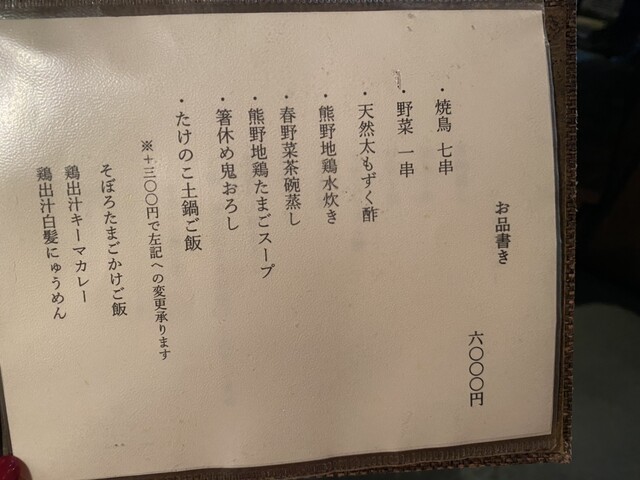 お品書き
六〇〇〇円
・焼鳥 七串
・野菜 一串
・天然太もずく酢
・熊野地鶏水炊き
・春野菜茶碗蒸し
・熊野地鶏たまごスープ
・箸休め鬼おろし
・たけのこ土鍋ご飯
※＋三〇〇円で左記への変更承ります
そぼろたまごかけご飯
鶏出汁キーマカレー
鶏出汁白髪にゅうめん